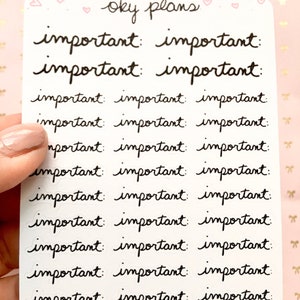 oky plans
important: important:
important: important:
important: important: important:
important: important: important:
important: important: important:
important: important: important:
important: important: important:
important: important: important:
important: important: important:
important: important: important: